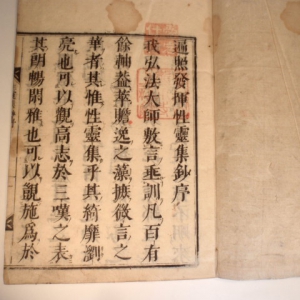 遍照發揮性靈集鈔序
我弘法大師敷言垂訓凡百有
餘軸益華贍逸之藻摭微言之
華者其惟性靈集乎其綺靡瀏
亮也可以觀高志於三嘆之表
其朗暢閑雅也可以觀施爲於